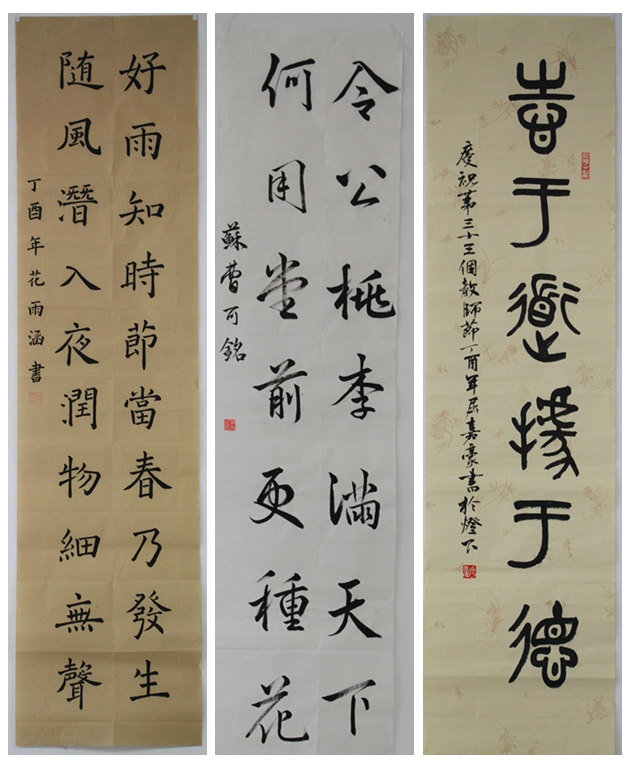 好雨知時節當春乃發生
随風潛入夜潤物細無聲
丁酉年花雨涵書
令公桃李滿天下
何用堂前更種花
蘇曹可銘
志于道據于德
慶祝第三十三個教師節丁酉年嘉豪書於燈下